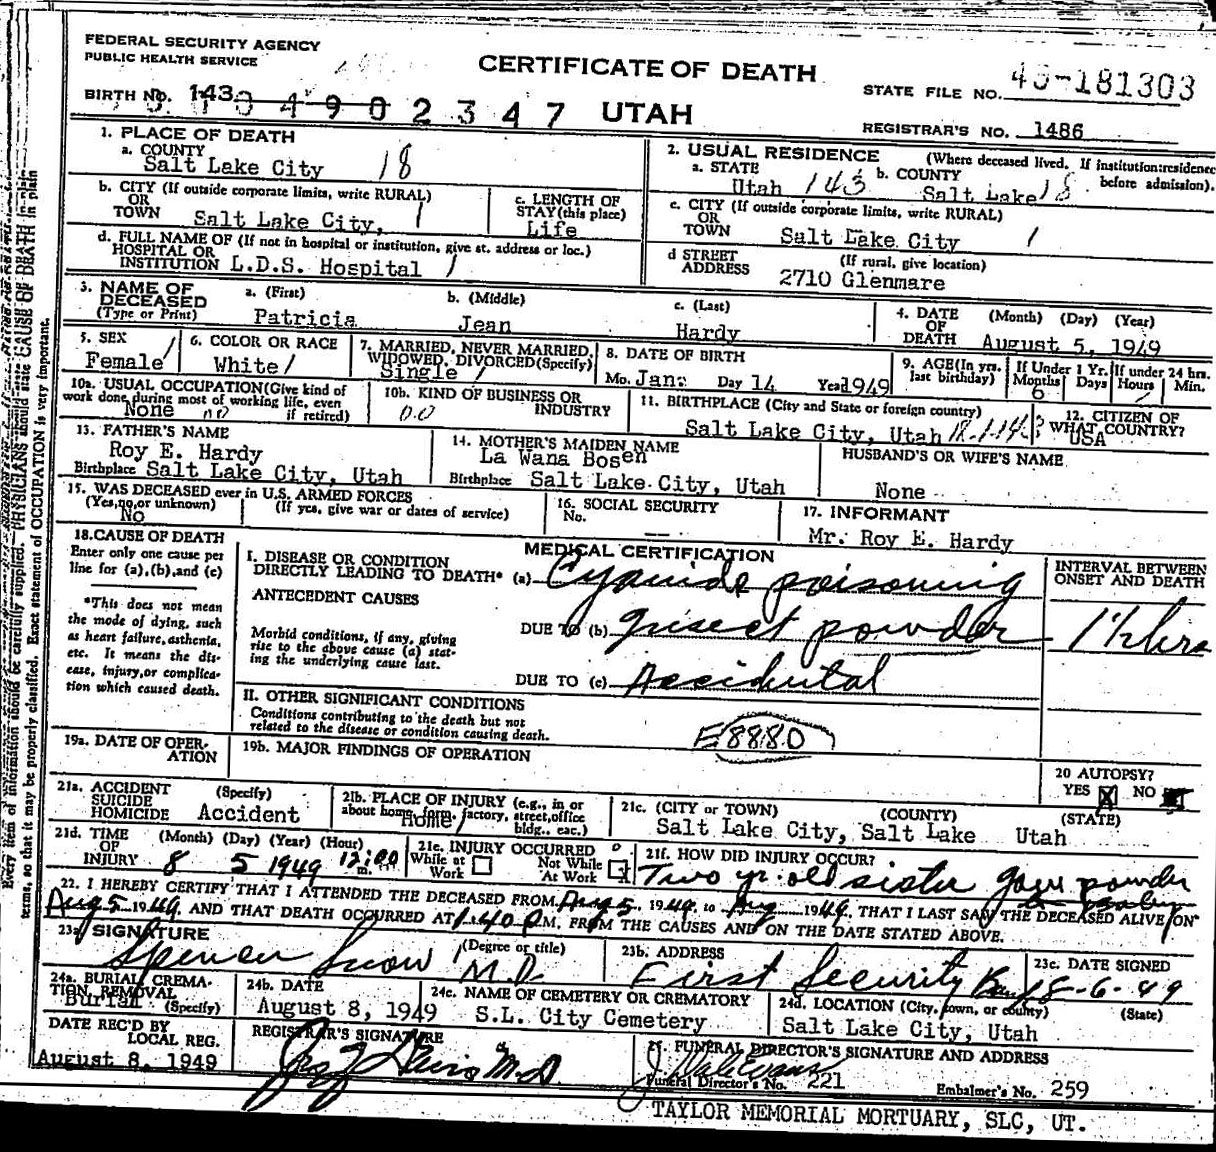 FEDERAL SECURITY AGENCY
PUBLIC HEALTH SERVICE
CERTIFICATE OF DEATH
STATE FILE NO. 49-181303
BIRTH NO. 143
4902347 UTAH
REGISTRAR'S NO. 1486
1. PLACE OF DEATH
a. COUNTY
Salt Lake City 18
2. USUAL RESIDENCE (Where deceased lived. If institution:residence before admission).
a. STATE b. COUNTY
Utah 143 Salt Lake 18
b. CITY (If outside corporate limits, write RURAL)
OR
TOWN Salt Lake City, 1
c. LENGTH OF
STAY(this place)
Life
c. CITY (If outside corporate limits, write RURAL)
OR
TOWN Salt Lake City 1
d. FULL NAME OF (If not in hospital or institution, give st. address or loc.)
HOSPITAL OR
INSTITUTION L.D.S. Hospital 1
d STREET (If rural, give location)
ADDRESS 2710 Glenmare
3. NAME OF a. (First) b. (Middle) c. (Last)
DECEASED
(Type or Print) Patricia Jean Hardy
4. DATE (Month) (Day) (Year)
OF
DEATH August 5, 1949
5. SEX
Female
6. COLOR OR RACE
White
7. MARRIED, NEVER MARRIED,
WIDOWED, DIVORCED(Specify)
Single
8. DATE OF BIRTH
Mo. Jan. Day 14 Year 1949
9. AGE(In yrs. last birthday)
If Under 1 Yr. If under 24 hrs.
Months Days Hours Min.
6
10a. USUAL OCCUPATION(Give kind of
work done during most of working life, even
if retired)
None
10b. KIND OF BUSINESS OR
INDUSTRY
11. BIRTHPLACE (City and State or foreign country)
Salt Lake City, Utah
12. CITIZEN OF
WHAT COUNTRY?
USA
13. FATHER'S NAME
Roy E. Hardy
Birthplace Salt Lake City, Utah
14. MOTHER'S MAIDEN NAME
La Wana Bosen
Birthplace Salt Lake City, Utah
HUSBAND'S OR WIFE'S NAME
None
15. WAS DECEASED ever in U.S. ARMED FORCES
(Yes,no,or unknown) (If yes, give war or dates of service)
No
16. SOCIAL SECURITY
No. --
17. INFORMANT
Mr. Roy E. Hardy
18. CAUSE OF DEATH
Enter only one cause per
line for (a),(b),and (c)
*This does not mean
the mode of dying, such
as heart failure, asthenia,
etc. It means the dis-
ease, injury,or complica-
tion which caused death.
MEDICAL CERTIFICATION
I. DISEASE OR CONDITION
DIRECTLY LEADING TO DEATH* (a) Cyanide poisoning
ANTECEDENT CAUSES
Morbid conditions, if any, giving
rise to the above cause (a) stat-
ing the underlying cause last.
DUE TO (b) Insect powder
DUE TO (c) Accidental
INTERVAL BETWEEN
ONSET AND DEATH
1½ hrs
II. OTHER SIGNIFICANT CONDITIONS
Conditions contributing to the death but not
related to the disease or condition causing death.
E8880
19a. DATE OF OPER-
ATION
19b. MAJOR FINDINGS OF OPERATION
20 AUTOPSY?
YES X NO
21a. ACCIDENT (Specify)
SUICIDE
HOMICIDE Accident
21b. PLACE OF INJURY (e.g., in or
about home, farm, factory, street,office
bldg., eac.)
Home
21c. (CITY or TOWN) (COUNTY) (STATE)
Salt Lake City, Salt Lake Utah
21d. TIME (Month) (Day) (Year) (Hour)
OF
INJURY 8 5 1949 12:00 m.
21e. INJURY OCCURRED
While at Work Not While At Work X
21f. HOW DID INJURY OCCUR?
Two yr. old sister gave powder
to baby
22. I HEREBY CERTIFY THAT I ATTENDED THE DECEASED FROM Aug 5, 1949 to Aug 1949, THAT I LAST SAW THE DECEASED ALIVE ON
Aug 5 1949, AND THAT DEATH OCCURRED AT 1:40 P.M. FROM THE CAUSES AND ON THE DATE STATED ABOVE.
23a SIGNATURE (Degree or title)
Spencer Snow M.D.
23b. ADDRESS
First Security Bank
23c. DATE SIGNED
8-6-49
24a. BURIAL, CREMA-
TION, REMOVAL
Burial (Specify)
24b. DATE
August 8, 1949
24c. NAME OF CEMETERY OR CREMATORY
S.L. City Cemetery
24d. LOCATION (City, town, or county) (State)
Salt Lake City, Utah
DATE REC'D BY
LOCAL REG.
August 8, 1949
REGISTRAR'S SIGNATURE
M.D.
25. FUNERAL DIRECTOR'S SIGNATURE AND ADDRESS
J. Dale Evans
Funeral Director's No. 221 Embalmer's No. 259
TAYLOR MEMORIAL MORTUARY, SLC, UT.
Every item of information should be carefully supplied. PHYSICIANS should state CAUSE OF DEATH in plain
terms, so that it may be properly classified. Exact statement of OCCUPATION is very important.